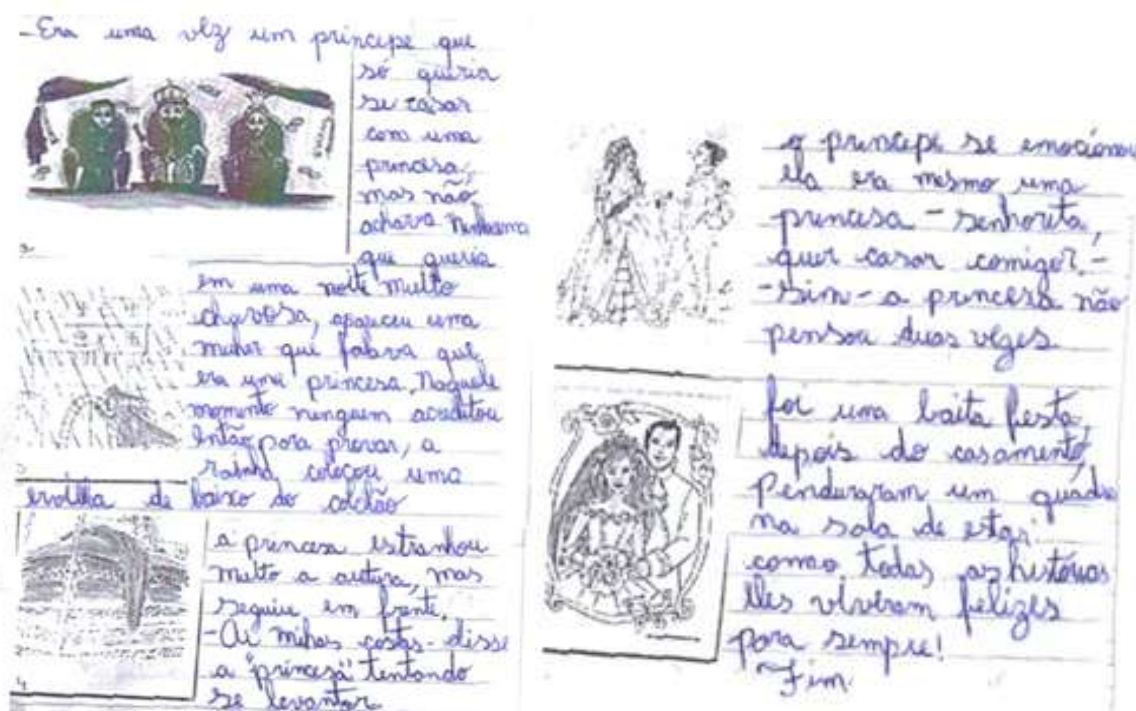 -Era uma vez um príncipe que
só queria
se casar
com uma
princesa,
mas não
achava nenhuma
que queria
em uma noite muito
chuvosa, apareceu uma
muher que falava que
era uma princesa, Naquele
momento ninguem acreditou
então pora provar, a
rainha colocou uma
ervilha de baixo do colchão
a princesa estranhou
muito a autura, mas
seguiu em frente.
-Ai mihas costas-disse
a "princesa" tentando
se levantar
4
o príncipe se emocionou
ela era mesmo uma
princesa - senhorita,
quer casar comigo? -
-sim- a princesa não
pensou duas vezes
foi uma baita festa,
depois do casamento,
Penduraram um quadro
na sala de estar
como todas as histórias
eles viveram felizes
para sempre!
Fim.